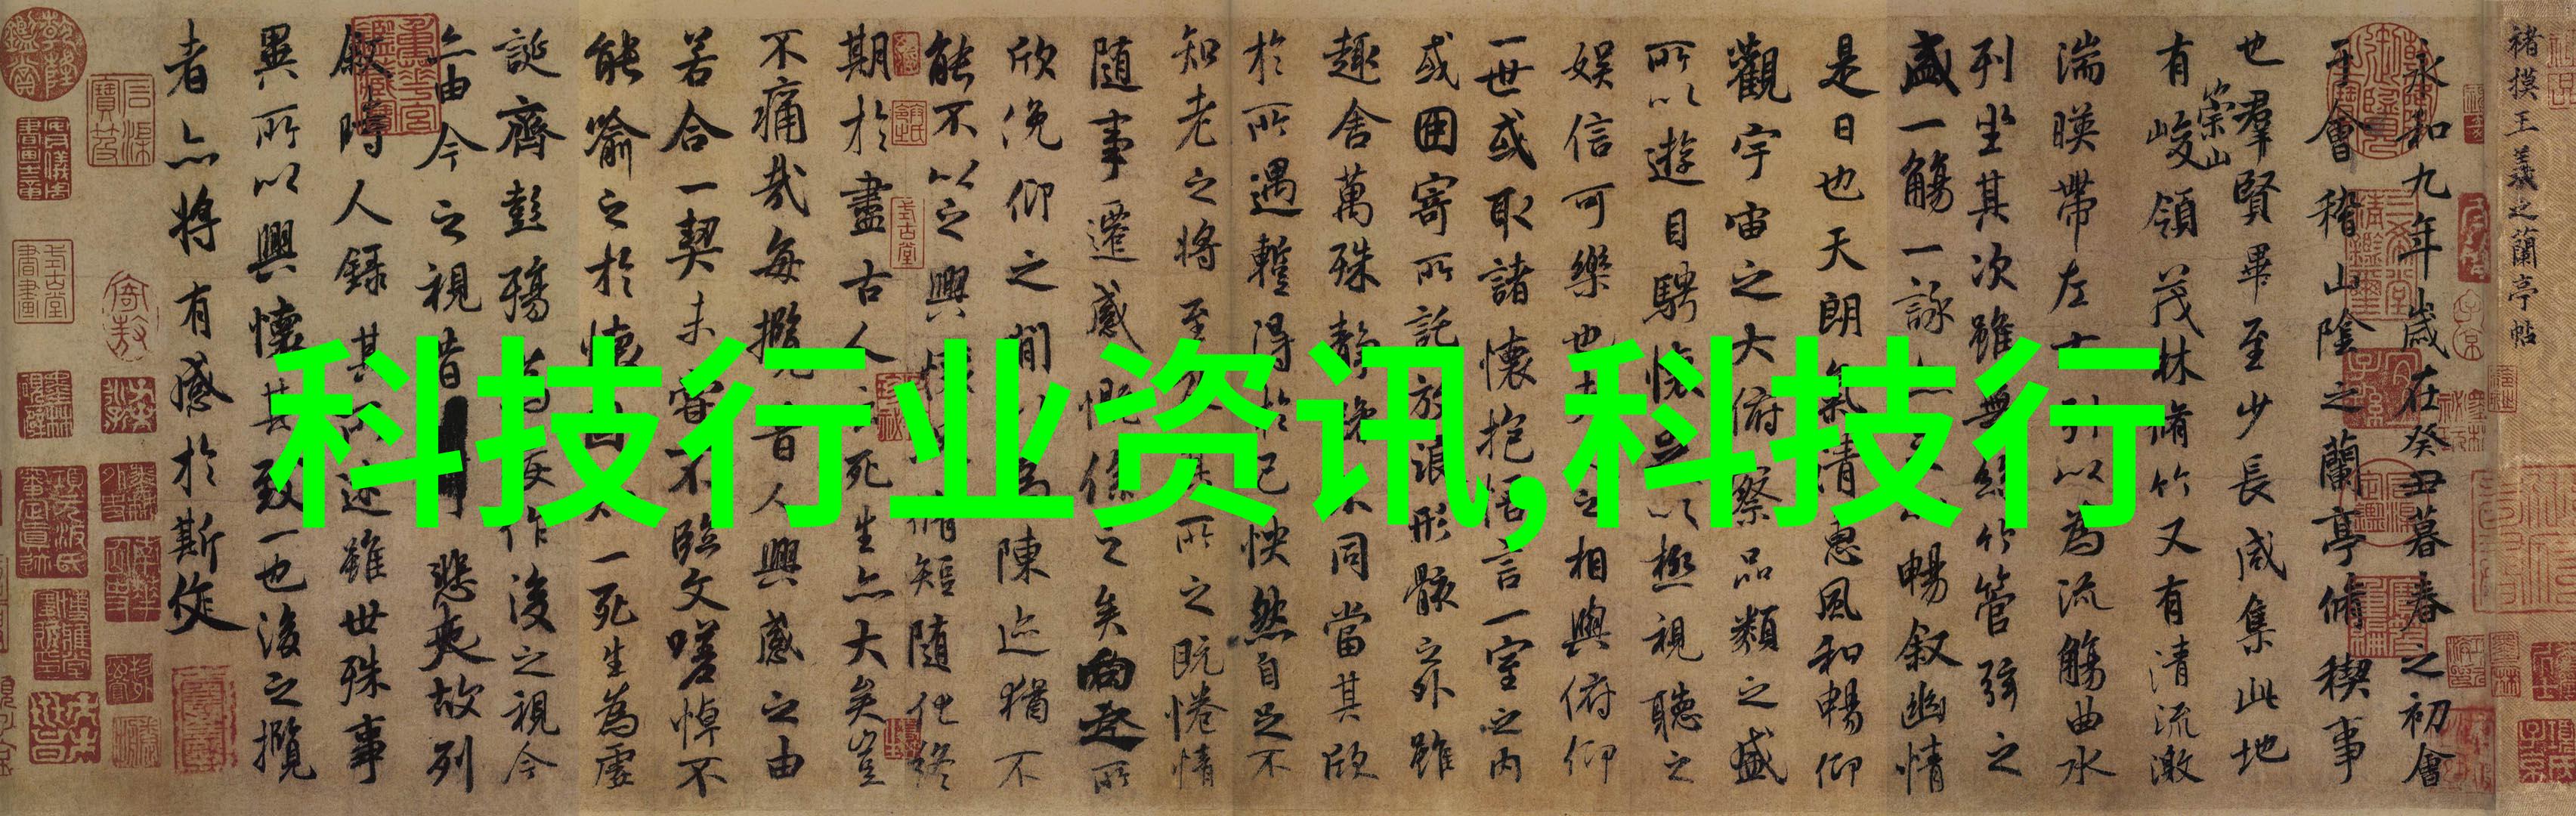 褚摸王羲之蘭亭帖
永和九年歳在癸丑暮春之初會
于會稽山陰之蘭亭脩稧事
也羣賢畢至少長咸集此地
有崇山峻領茂林脩竹又有清流激
湍暎帶左右引以為流觴曲水
列坐其次雖無絲竹管弦之
盛一觴一詠亦足以暢叙幽情
是日也天朗氣清惠風和暢仰
觀宇宙之大俯察品類之盛
所以遊目騁懷足以極視聽之
娱信可樂也夫人之相與俯仰
一世或取諸懷抱悟言一室之内
或因寄所託放浪形骸之外雖
趣舍萬殊静躁不同當其欣
於所遇暫得於己怏然自足不
知老之將至及其所之既惓情
随事遷感慨係之矣向之所
欣俛仰之閒以為陳迹猶不
能不以之興懷况脩短随化終
期於盡古人云死生亦大矣豈
不痛哉每攬昔人興感之由
若合一契未甞不臨文嗟悼不
能喻之於懷固知一死生為虚
誕齊彭殤為妄作後之視今
亦由今之視昔悲夫故列
叙時人録其所述雖世殊事
異所以興懷其致一也後之攬
者亦將有感於斯文
科技行业资讯,科技行